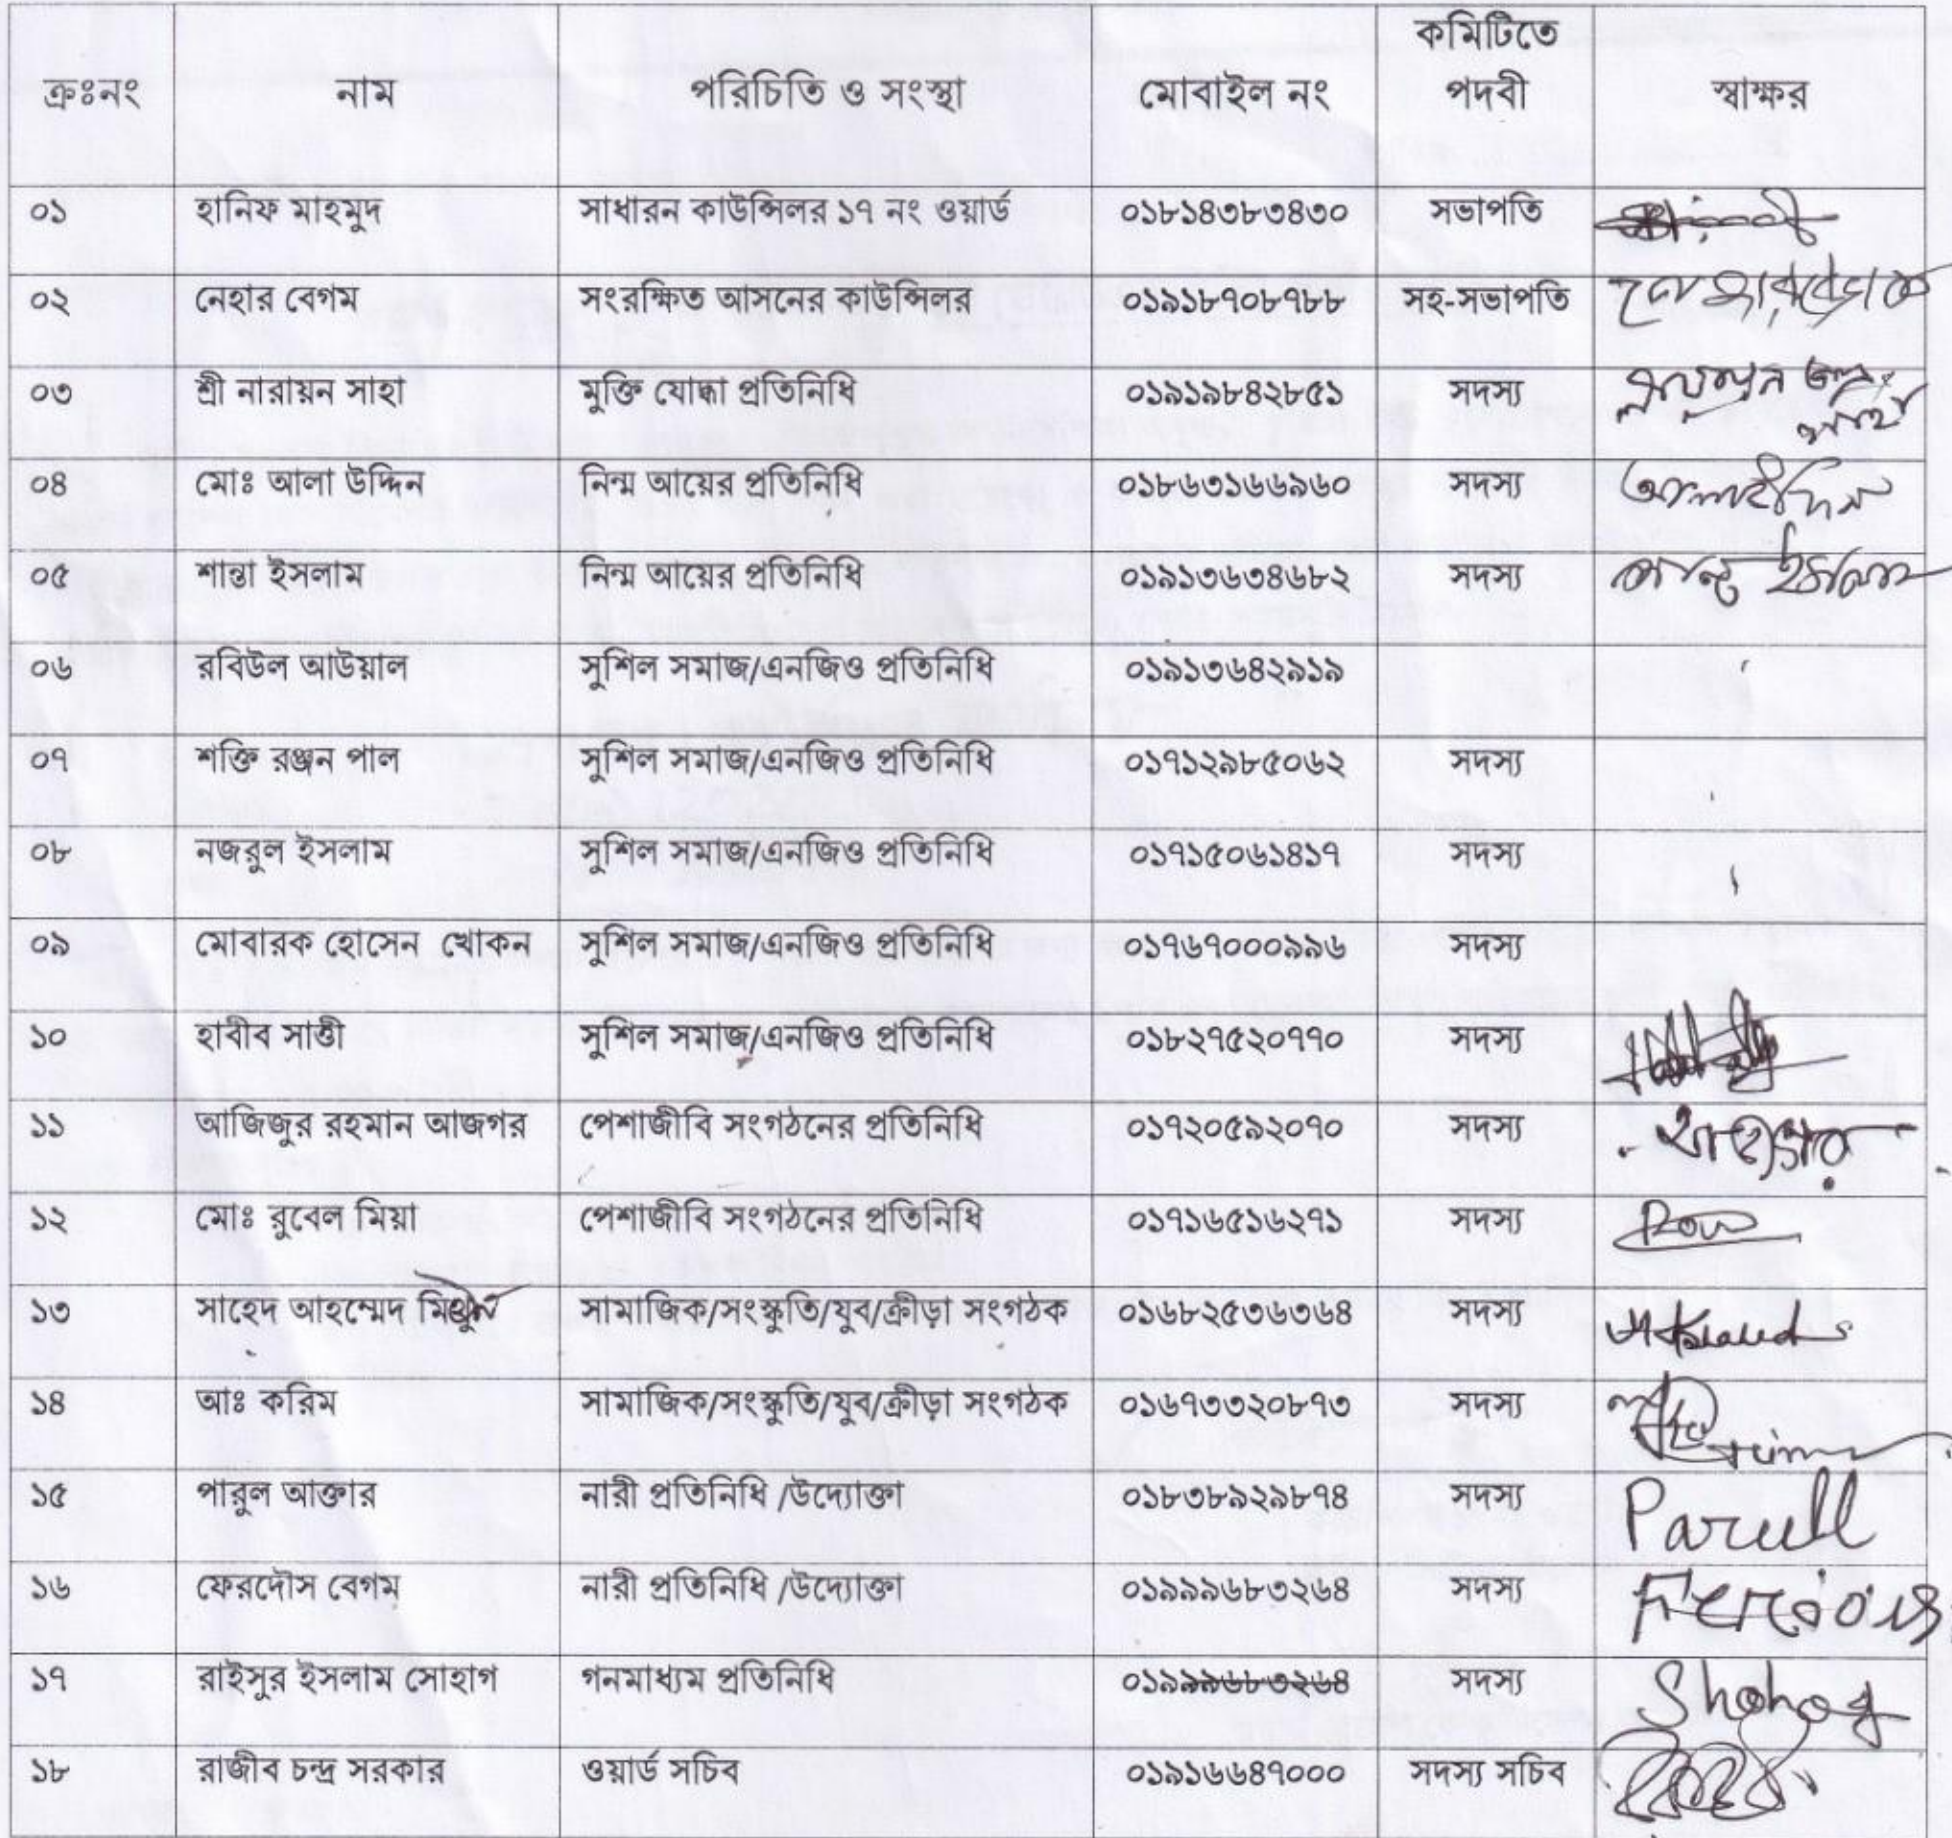 ক্রঃনং নাম পরিচিতি ও সংস্থা মোবাইল নং কমিটিতে পদবী স্বাক্ষর
০১ হানিফ মাহমুদ সাধারন কাউন্সিলর ১৭ নং ওয়ার্ড ০১৮১৪৩৮৩৪৩০ সভাপতি
০২ নেহার বেগম সংরক্ষিত আসনের কাউন্সিলর ০১৯১৮৭০৮৭৮৮ সহ-সভাপতি
০৩ শ্রী নারায়ন সাহা মুক্তি যোদ্ধা প্রতিনিধি ০১৯১৯৮৪২৮৫১ সদস্য
০৪ মোঃ আলা উদ্দিন নিন্ম আয়ের প্রতিনিধি ০১৮৬৩১৬৬৯৬০ সদস্য
০৫ শান্তা ইসলাম নিন্ম আয়ের প্রতিনিধি ০১৯১৩৬৩৪৬৮২ সদস্য
০৬ রবিউল আউয়াল সুশিল সমাজ/এনজিও প্রতিনিধি ০১৯১৩৬৪২৯১৯
০৭ শক্তি রঞ্জন পাল সুশিল সমাজ/এনজিও প্রতিনিধি ০১৭১২৯৮৫০৬২ সদস্য
০৮ নজরুল ইসলাম সুশিল সমাজ/এনজিও প্রতিনিধি ০১৭১৫০৬১৪১৭ সদস্য
০৯ মোবারক হোসেন খোকন সুশিল সমাজ/এনজিও প্রতিনিধি ০১৭৬৭০০০৯৯৬ সদস্য
১০ হাবীব সাত্তী সুশিল সমাজ/এনজিও প্রতিনিধি ০১৮২৭৫২০৭৭০ সদস্য
১১ আজিজুর রহমান আজগর পেশাজীবি সংগঠনের প্রতিনিধি ০১৭২০৫৯২০৭০ সদস্য
১২ মোঃ রুবেল মিয়া পেশাজীবি সংগঠনের প্রতিনিধি ০১৭১৬৫১৬২৭১ সদস্য
১৩ সাহেদ আহম্মেদ মিথুন সামাজিক/সংস্কৃতি/যুব/ক্রীড়া সংগঠক ০১৬৮২৫৩৬৩৬৪ সদস্য
১৪ আঃ করিম সামাজিক/সংস্কৃতি/যুব/ক্রীড়া সংগঠক ০১৬৭৩৩২০৮৭৩ সদস্য
১৫ পারুল আক্তার নারী প্রতিনিধি /উদ্যোক্তা ০১৮৩৮৯২৯৮৭৪ সদস্য Parull
১৬ ফেরদৌস বেগম নারী প্রতিনিধি /উদ্যোক্তা ০১৯৯৯৬৮৩২৬৪ সদস্য Ferdous
১৭ রাইসুর ইসলাম সোহাগ গনমাধ্যম প্রতিনিধি ০১৯৯৯৬৮৩২৬৪ সদস্য Shohag
১৮ রাজীব চন্দ্র সরকার ওয়ার্ড সচিব ০১৯১৬৬৪৭০০০ সদস্য সচিব